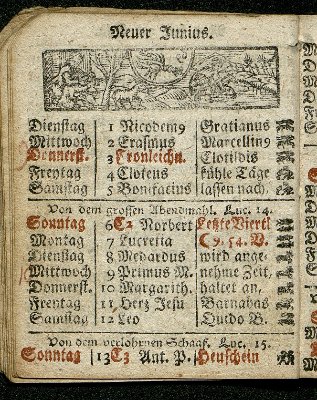 Neuer Junius.
Dienstag 1 Nicodem9 Gratianus
Mittwoch 2 Erasmus Marcellin9
Donnerst. 3 Fronleichn. Clotildis
Freytag 4 Cloteus kühle Täge
Samstag 5 Bonifacius lassen nach.
Von dem grossen Abendmahl. Luc. 14.
Sonntag 6 C2 Norbert Letzte Viertl
Montag 7 Lucretia 9. 54. V.
Dienstag 8 Medardus wird ange-
Mittwoch 9 Primus M. nehme Zeit,
Donnerst. 10 Margarith. haltet an.
Freytag 11 Herz Jesu Barnabas
Samstag 12 Leo Quido B.
Von dem verlohrnen Schaaf. Luc. 15.
Sonntag 13 C3 Ant. P. Heuschein